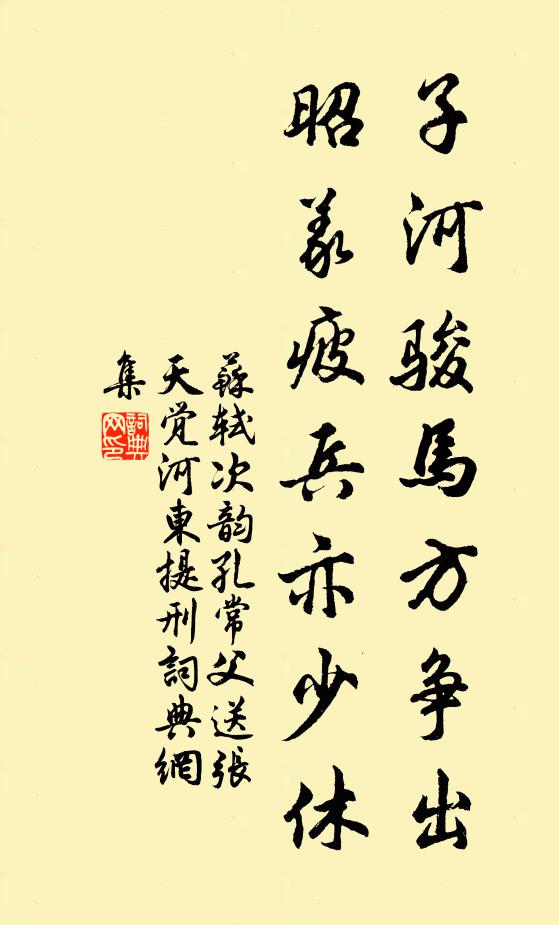 子河骏馬方争出
昭義疲兵亦少休
蘇軾次韵孔常父送張
天觉河東提刑詞典網
集
詞典
网印